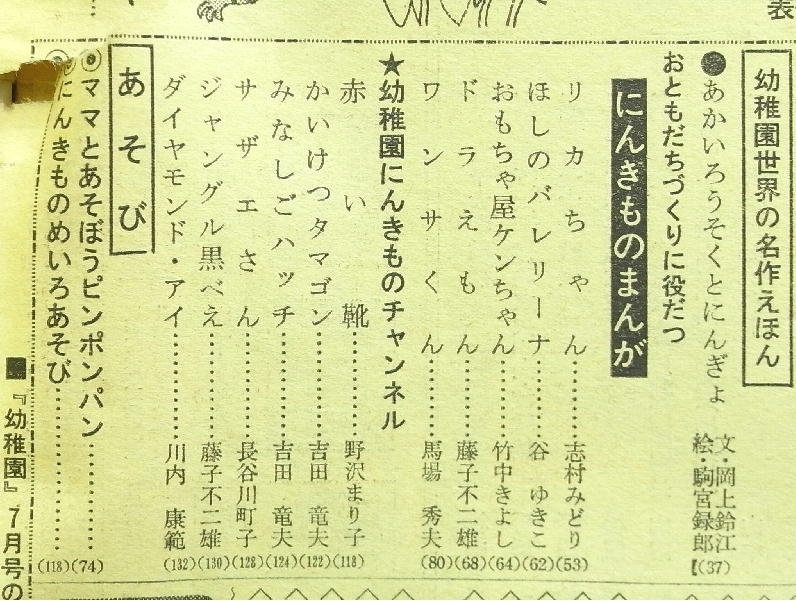 表
幼稚園世界の名作えほん
●あかいろうそくとにんぎょ
文・岡上鈴江
絵・駒宮録郎
(37)
おともだちづくりに役だつ
にんきものまんが
リカちゃん…………志村みどり(53)
ほしのバレリーナ…………谷 ゆきこ(62)
おもちゃ屋ケンちゃん…………竹中きよし(64)
ドラえもん…………藤子不二雄(68)
ワンサくん…………馬場 秀夫(80)
★幼稚園にんきものチャンネル
赤い靴…………野沢まり子(118)
かいけつタマゴン…………吉田 竜夫(122)
みなしごハッチ…………吉田 竜夫(124)
サザエさん…………長谷川町子(128)
ジャングル黒べえ…………藤子不二雄(130)
ダイヤモンド・アイ…………川内 康範(132)
あそび
◉ママとあそぼうピンポンパン…………(74)
◉にんきものめいろあそび…………(118)
■『幼稚園』7月号の